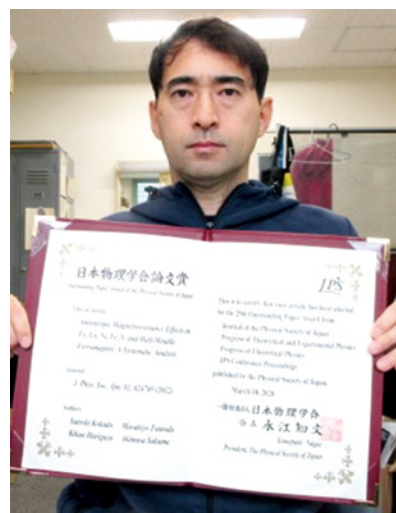 日本物理学会論文賞
Outstanding Paper Award of the Physical Society of Japan
Title of article
Anisotropic Magnetoresistance Effects in
Fe, Co, Ni, Fe₄N, and Half-Metallic
Ferromagnet: A Systematic Analysis
Journal
J. Phys. Soc. Jpn. 81, 024705 (2012)
Authors
Satoshi Kokado Masakiyo Tsunoda
Kikuo Harigaya Akimasa Sakuma
JPS
This is to certify that your article has been selected
for the 25th Outstanding Paper Award from
Journal of the Physical Society of Japan
Progress of Theoretical and Experimental Physics
Progress of Theoretical Physics
JPS Conference Proceedings
published by the Physical Society of Japan
March 18, 2020
一般社団法人 日本物理学会
会長 永江知文
Tomofumi Nagae
President, The Physical Society of Japan